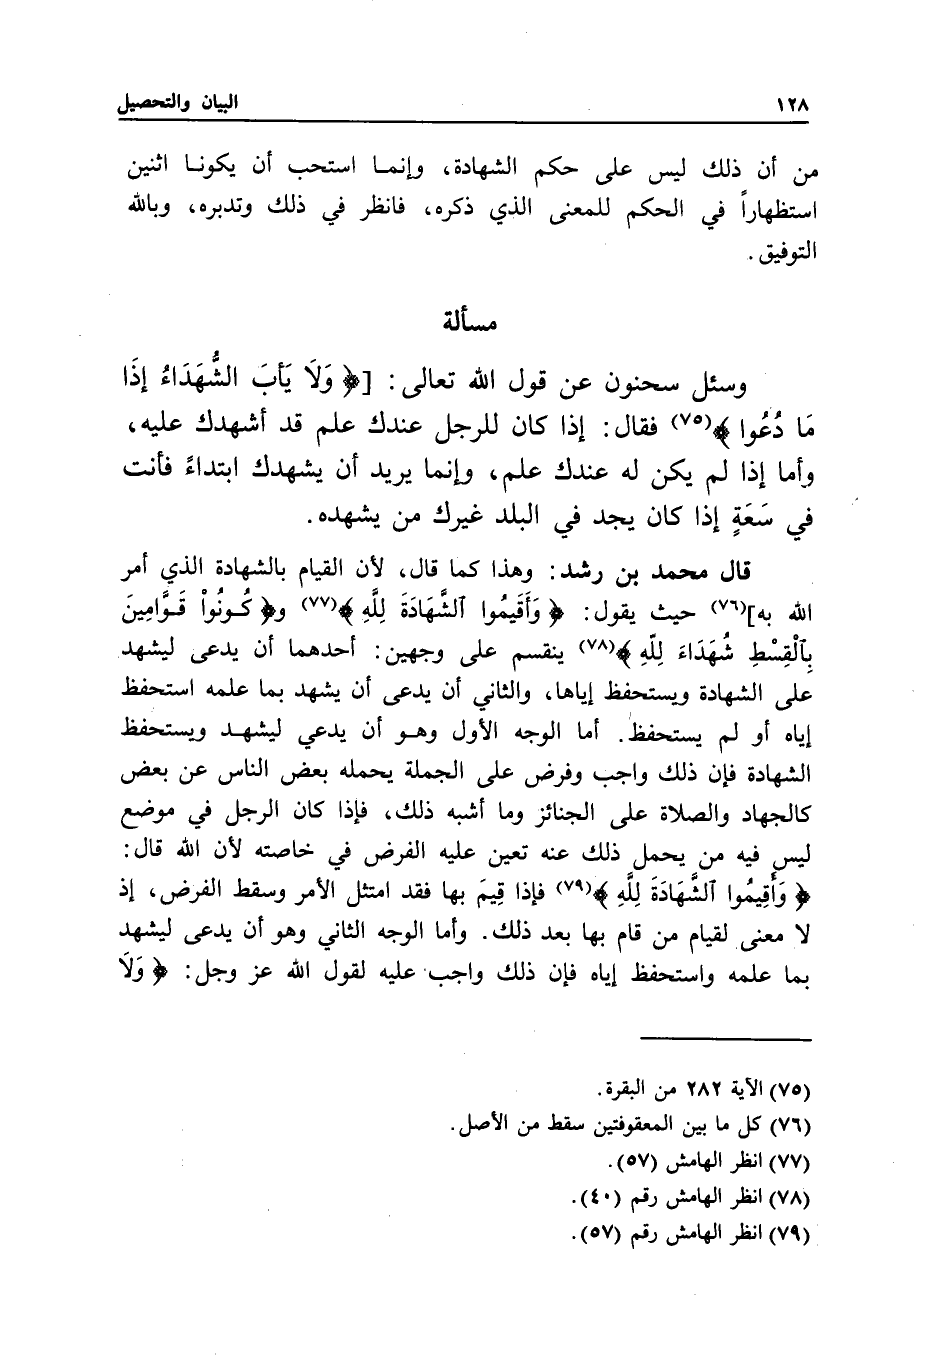 ١٢٨ البيان والتحصيل
من أن ذلك ليس على حكم الشهادة، وإنمـا استحب أن يكونـا اثنين
استظهاراً في الحكم للمعنى الذي ذكره، فانظر في ذلك وتدبره، وبالله
التوفيق.
مسألة
وسئل سحنون عن قول الله تعالى: [﴿ وَلَا يَأْبَ الشُّهَدَاءُ إذَا
مَا دُعُوا ﴾(٧٥) فقال: إذا كان للرجل عندك علم قد أشهدك عليه،
وأما إذا لم يكن له عندك علم، وإنما يريد أن يشهدك ابتداءً فأنت
في سَعَةٍ إذا كان يجد في البلد غيرك من يشهده.
قال محمد بن رشد: وهذا كما قال، لأن القيام بالشهادة الذي أمر
الله به](٧٦) حيث يقول: ﴿ وَأَقِيمُوا ٱلشَّهَادَةَ لِلَّهِ ﴾(٧٧) و﴿ كُـونُواْ قَـوَّامِينَ
بِٱلْقِسْطِ شُهَدَاءَ لِلّهِ ﴾(٧٨) ينقسم على وجهين: أحدهما أن يدعى ليشهد
على الشهادة ويستحفظ إياها، والثاني أن يدعى أن يشهد بما علمه استحفظ
إياه أو لم يستحفظ. أما الوجه الأول وهـو أن يدعي ليشهـد ويستحفظ
الشهادة فإن ذلك واجب وفرض على الجملة يحمله بعض الناس عن بعض
كالجهاد والصلاة على الجنائز وما أشبه ذلك، فإذا كان الرجل في موضع
ليس فيه من يحمل ذلك عنه تعين عليه الفرض في خاصته لأن الله قال:
﴿ وَأَقِيمُوا ٱلشَّهَادَةَ لِلَّهِ ﴾(٧٩) فإذا قِيمَ بها فقد امتثل الأمر وسقط الفرض، إذ
لا معنى لقيام من قام بها بعد ذلك. وأما الوجه الثاني وهو أن يدعى ليشهد
بما علمه واستحفظ إياه فإن ذلك واجب عليه لقول الله عز وجل: ﴿ وَلَا
(٧٥) الآية ٢٨٢ من البقرة.
(٧٦) كل ما بين المعقوفتين سقط من الأصل.
(٧٧) انظر الهامش (٥٧).
(٧٨) انظر الهامش رقم (٤٠).
(٧٩) انظر الهامش رقم (٥٧).